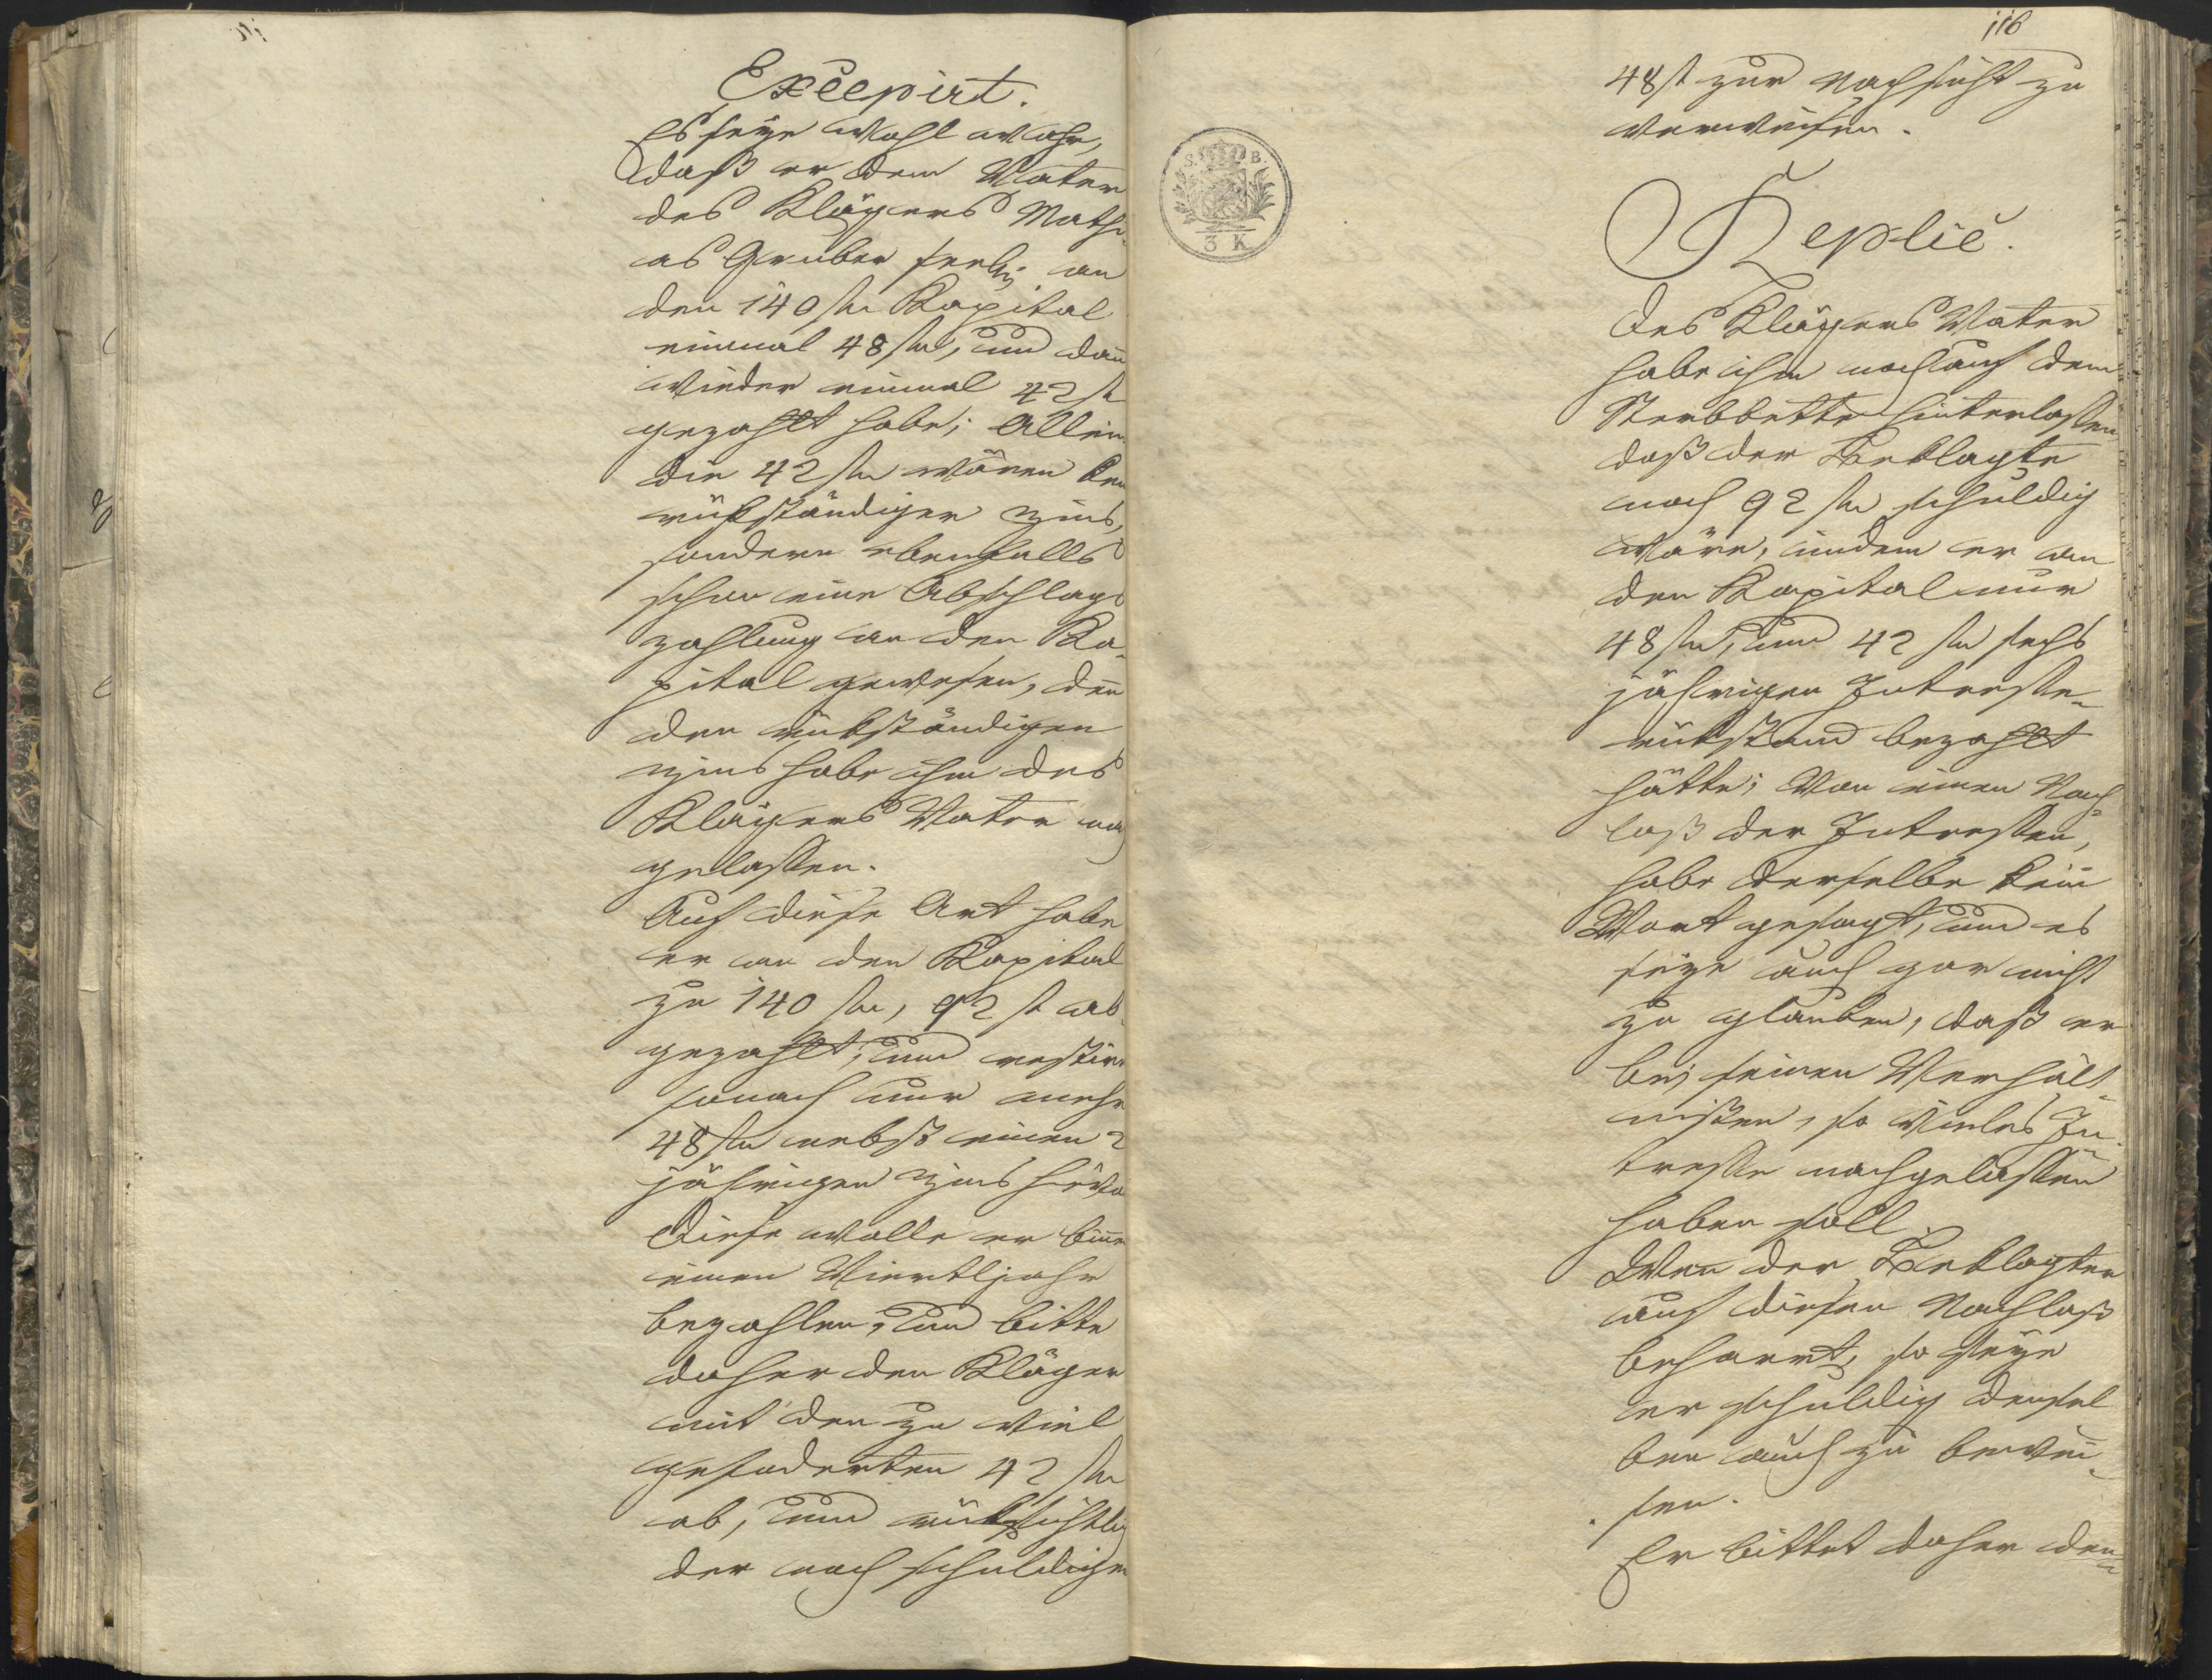 Excepirt.
Es seye wohl wahr,
daß er dem Vater
des Klägers Mathi-
as Gruber seelig an
den 140 fl Kapital
einmal 48 fl, und dan
wieder einmal 42 fl
gezahlt habe; Allein
die 42 fl wären kein
rükständiger Zins,
sondern ebenfalls
schon eine Abschlags
zahlung an den Ka-
pital gewesen, den
den rükständigen
Zins habe ihm des
Klägers Vater nach
gelassen.
Auf diese Art habe
er an den Kapital
zu 140 fl, 92 fl ab
gezahlt, und restire
sonach nur mehr
48 fl nebst einen 2
jährigen Zins hievon
Diese wolle er binen
einen Viertljahr
bezahlen, und bitte
daher den Kläger
mit den zu viel
gefoderten 42 fl
ab, und rüksichtlich
der noch schuldigen
116
48 fl zur Nachsicht zu
verweisen.
S. B.
3 K
Replic.
Des Klägers Vater
habe ihm noch auf dem
Sterbbette hinterlassen
daß der Beklagte
noch 92 fl schuldig
wäre, indem er an
den Kapital nur
48 fl, und 42 fl sechs
jährigen Interesse-
rükstand bezahlt
hätte; Von einen Nach-
laß der Interessen,
habe derselbe kein
Wort gesagt, und es
seye auch gar nicht
zu glauben, daß er
bei seinen Verhält-
nissen, so vieles In-
teresse nachgelassen
haben soll.
Wen der Beklagter
auf diesen Nachlaß
beharrt, so seye
er schuldig densel
ben auch zu bewei-
sen.
Er bittet daher den-